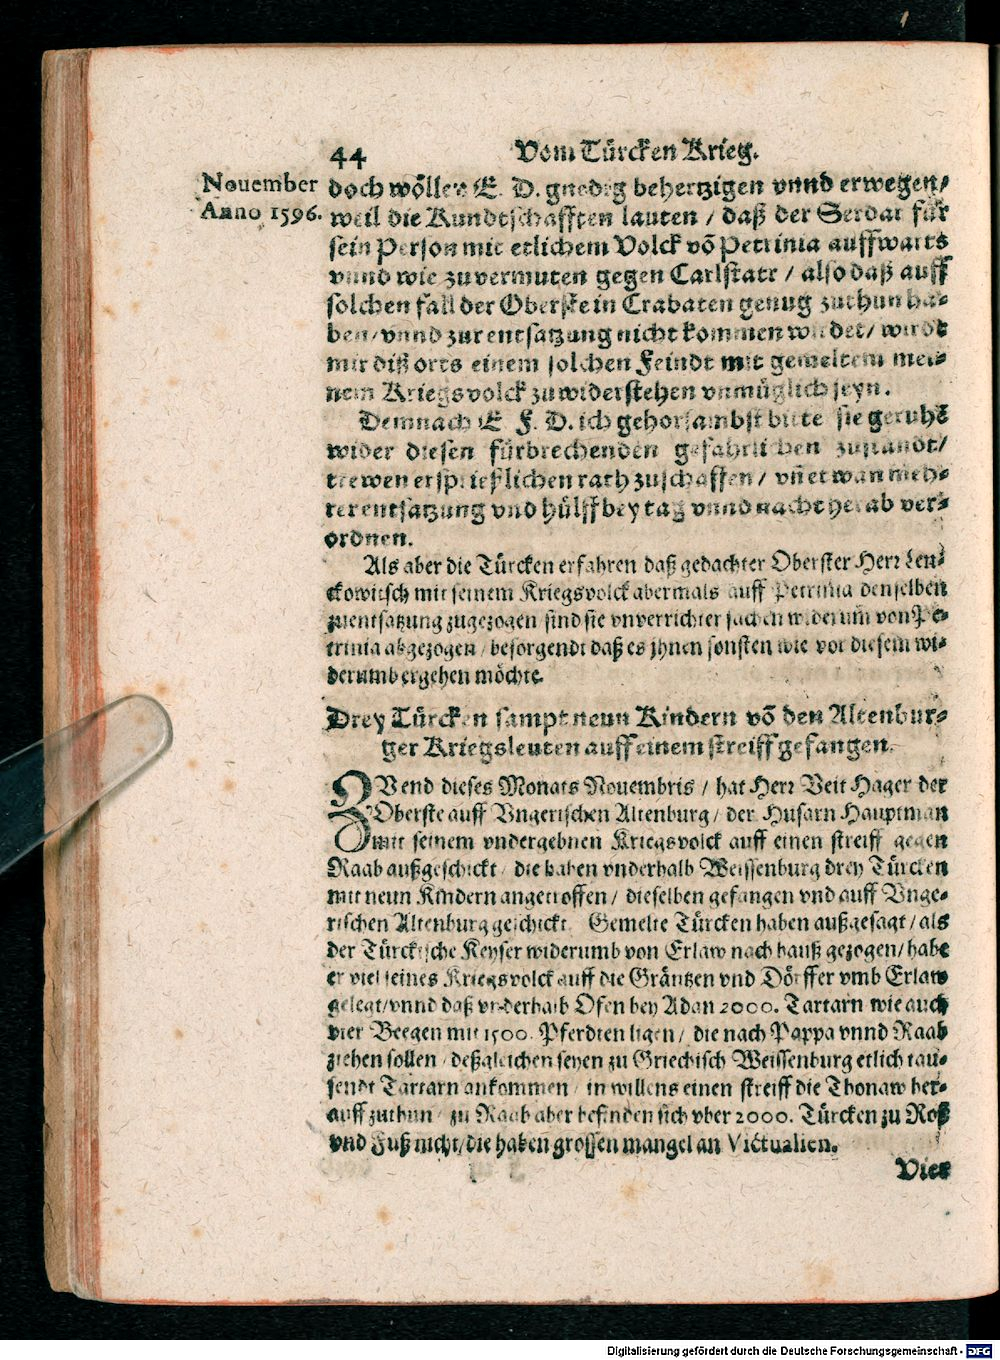 44 Vom Türcken Krieg.
Nouember
Anno 1596.
doch wöllen E. D. gnedig behertzigen vnnd erwegen/
weil die Kundtschafften lauten / daß der Serdar für
sein Person mit etlichem Volck võ Petrinia auffwarts
vnnd wie zuvermuten gegen Carlstatt / also daß auff
solchen fall der Oberste in Crabaten genug zuthun ha-
ben/vnnd zur entsatzung nicht kommen würdet/ würdt
mir diß orts einem solchen Feindt mit gemeltem mei-
nem Kriegsvolck zuwiderstehen vnmüglich seyn.
Demnach E. F. D. ich gehorsambst bitte sie geruhē
wider diesen fürbrechenden gefahrlichen zustandt/
trewen ersprießlichen rath zuschaffen / vñ etwan meh-
rer entsatzung vnd hülff bey tag vnnd nacht herab ver-
ordnen.
Als aber die Türcken erfahren daß gedachter Oberster Herr Len-
ckowitsch mit seinem Kriegsvolck abermals auff Petrinia denselben
zuentsatzung zugezogen sind sie vnverrichter sachen widerum von Pe-
trinia abgezogen / besorgendt daß es jhnen sonsten wie vor diesem wi-
derumb ergehen möchte.
Drey Türcken sampt neun Kindern võ den Altenbur-
ger Kriegsleuten auff einem streiff gefangen.
ZVend dieses Monats Nouembris / hat Herr Veit Hager der
Oberste auff Vngerischen Altenburg / der Husarn Hauptman
mit seinem vndergebnen Kriegsvolck auff einen streiff gegen
Raab außgeschickt / die haben vnderhalb Weissenburg drey Türcken
mit neun Kindern angetroffen / dieselben gefangen vnd auff Vnge-
rischen Altenburg geschickt. Gemelte Türcken haben außgesagt / als
der Türckische Keyser widerumb von Erlaw nach hauß gezogen/ habe
er viel seines Kriegsvolck auff die Gräntzen vnd Dörffer vmb Erlaw
gelegt/vnnd daß vnderhalb Ofen bey Adan 2000. Tartarn wie auch
vier Beegen mit 1500. Pferdten ligen / die nach Pappa vnnd Raab
ziehen sollen / deßgleichen seyen zu Griechisch Weissenburg etlich tau-
sendt Tartarn ankommen / in willens einen streiff die Thonaw her-
auff zuthun / zu Raab aber befinden sich vber 2000. Türcken zu Roß
vnd Fuß nicht/die haben grossen mangel an Victualien.
Vier
Digitalisierung gefördert durch die Deutsche Forschungsgemeinschaft - DFG